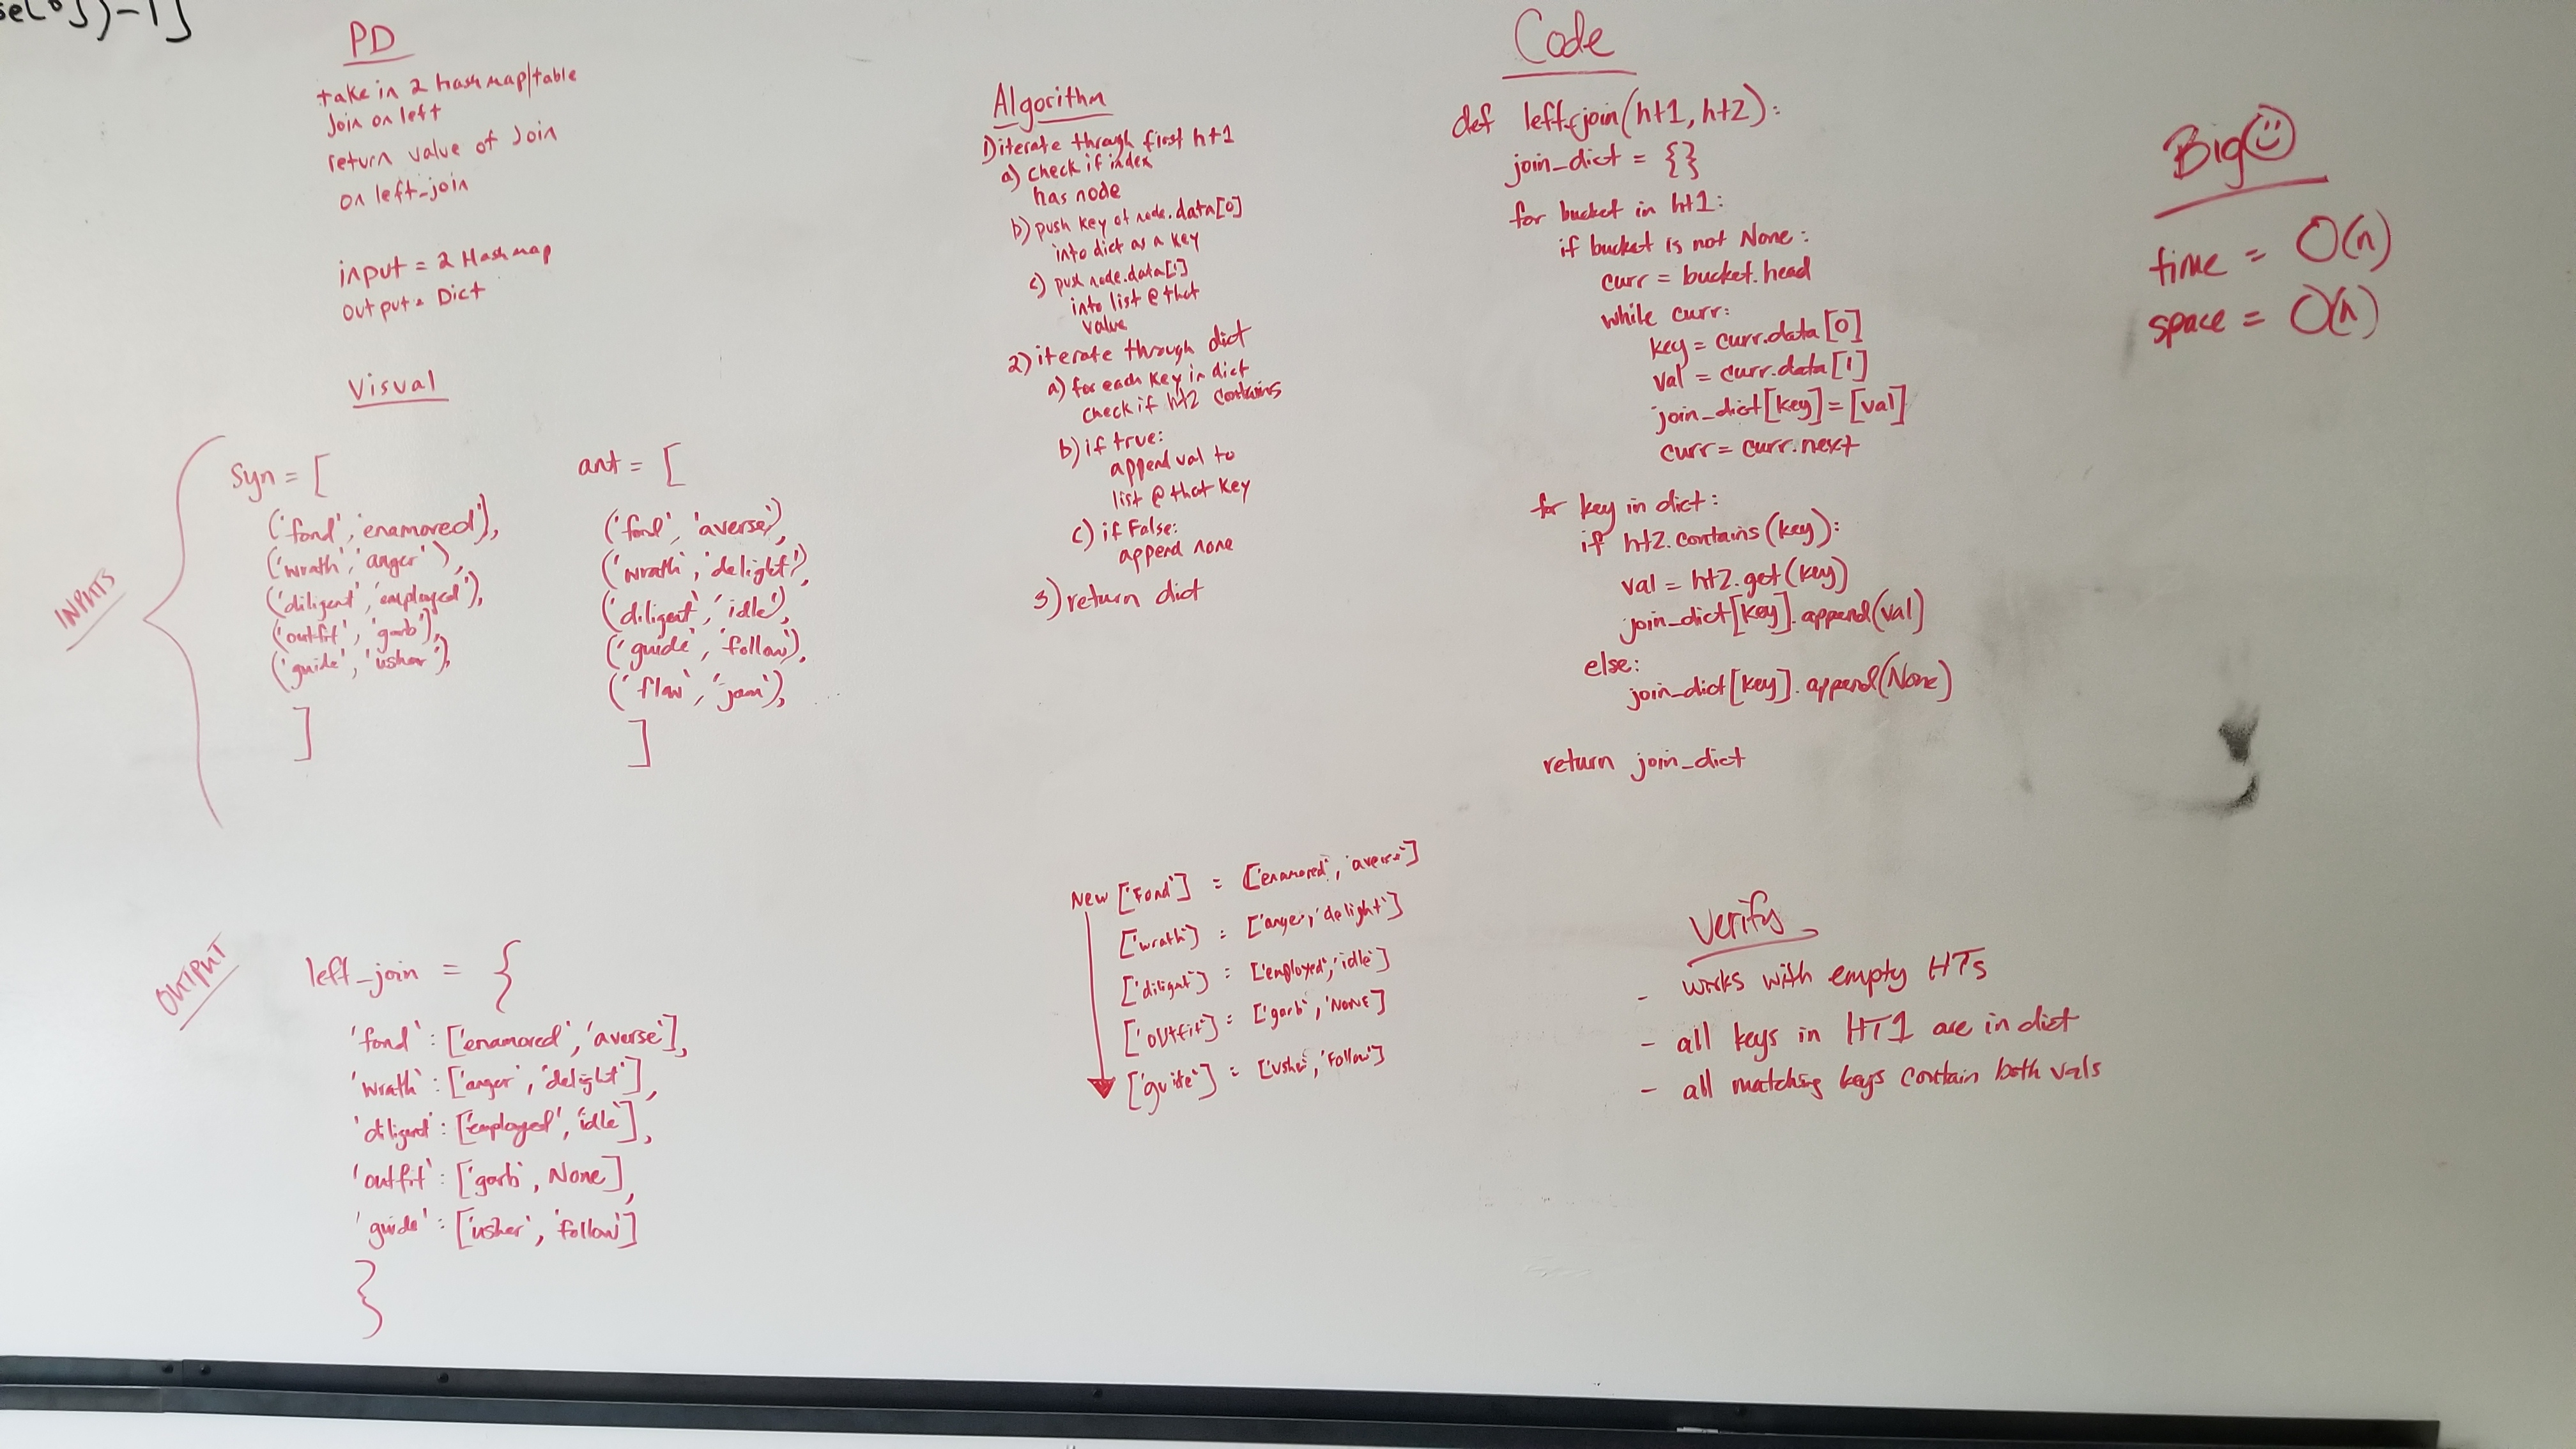 PD
take in 2 hash map/table
Join on left
return value of Join
on left-join
input = 2 Hash map
output = Dict
Visual
INPUTS
Syn = [
('fond', 'enamored'),
('wrath', 'anger'),
('diligent', 'employed'),
('outfit', 'garb'),
('guide', 'usher'),
]
ant = [
('fond', 'averse'),
('wrath', 'delight'),
('diligent', 'idle'),
('guide', 'follow'),
('flow', 'jam'),
]
OUTPUT
left_join = {
'fond': ['enamored', 'averse'],
'wrath': ['anger', 'delight'],
'diligent': ['employed', 'idle'],
'outfit': ['garb', None],
'guide': ['usher', 'follow']
}
Algorithm
1) iterate through first ht1
a) check if index
has node
b) push key of node.data[0]
into dict as a key
c) push node.data[1]
into list @ that
value
2) iterate through dict
a) for each key in dict
check if ht2 contains
b) if true:
append val to
list @ that key
c) if False:
append none
3) return dict
New ['Fond'] = ['enamored', 'averse']
['wrath'] = ['anger', 'delight']
['diligent'] = ['employed', 'idle']
['outfit'] = ['garb', 'NONE']
['guide'] = ['usher', 'Follow']
Code
def left_join(ht1, ht2):
join_dict = {}
for bucket in ht1:
if bucket is not None:
curr = bucket.head
while curr:
key = curr.data[0]
val = curr.data[1]
join_dict[key] = [val]
curr = curr.next
for key in dict:
if ht2.contains(key):
val = ht2.get(key)
join_dict[key].append(val)
else:
join_dict[key].append(None)
return join_dict
Verify
- works with empty HTs
- all keys in HT1 are in dict
- all matching keys contain both vals
Big
time = O(n)
space = O(n)